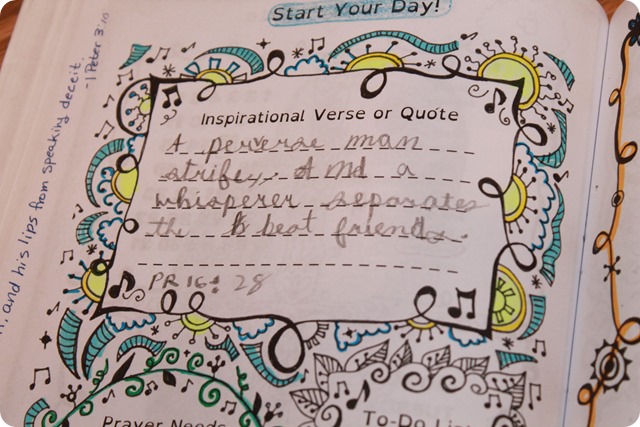 Start Your Day!
Inspirational Verse or Quote
A perverse man
strife, And a
whisperer separates
the best friends.
PR 16: 28
and his lips from speaking deceit.
- 1 Peter 3:10
Prayer Needs
To-Do List